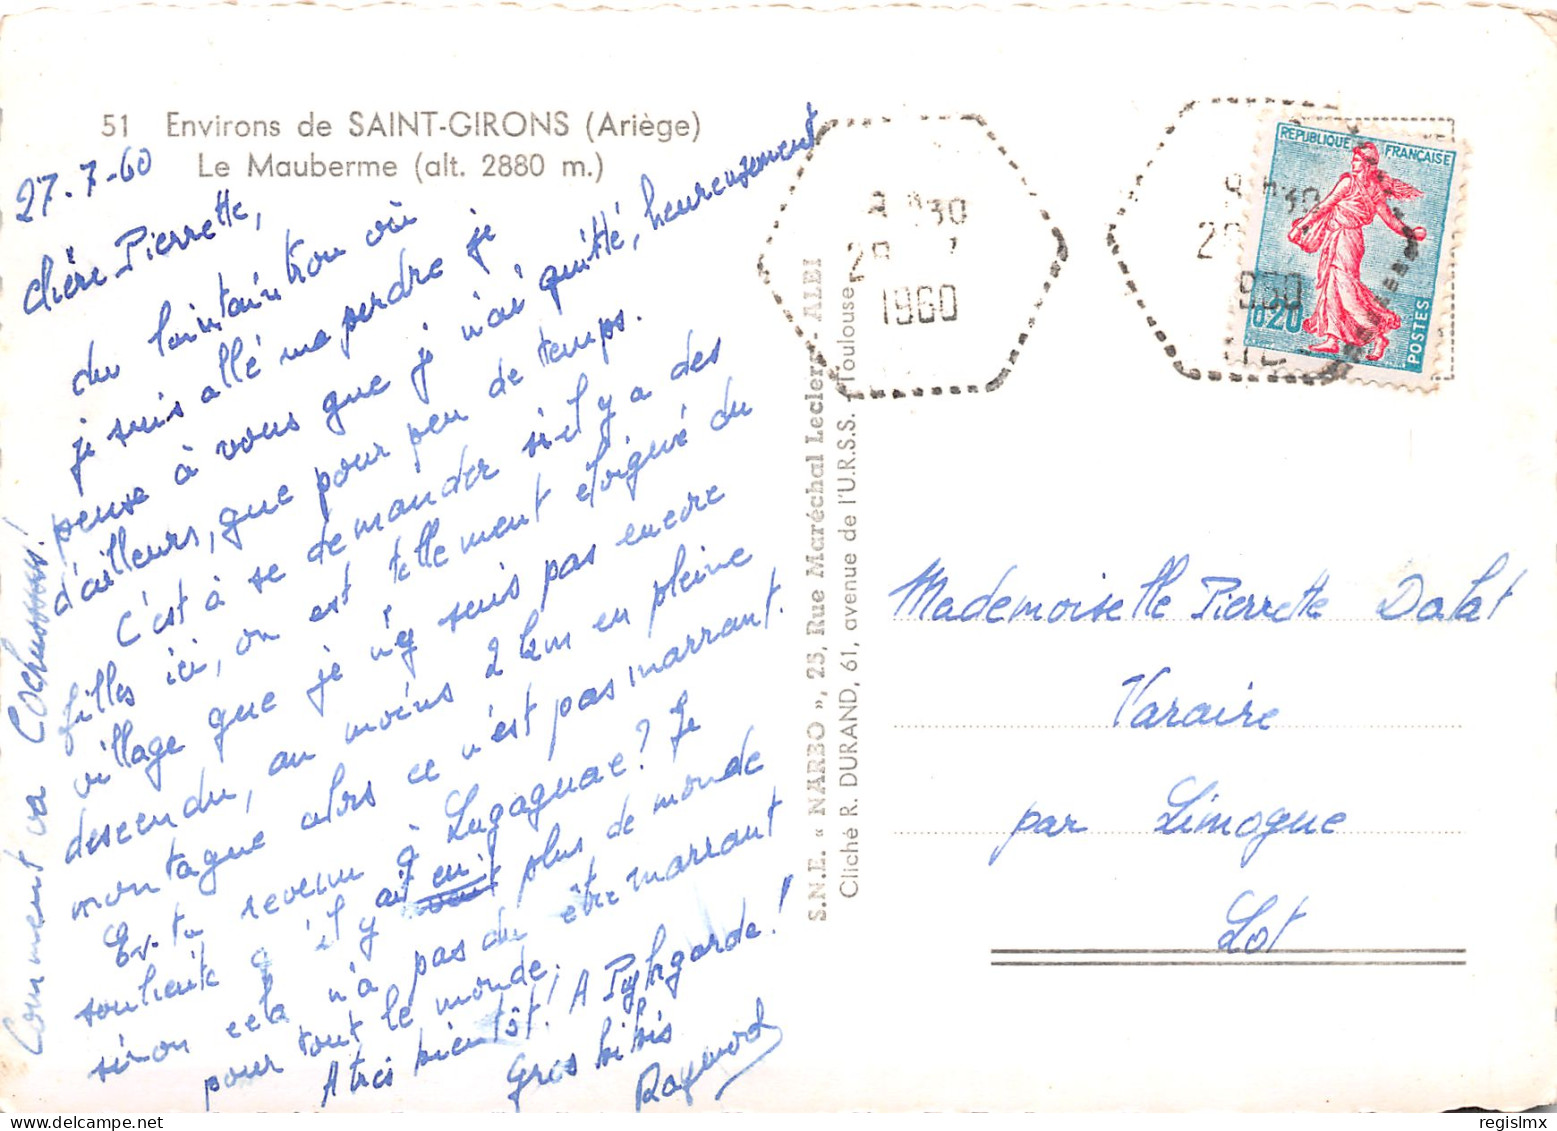 51 Environs de SAINT-GIRONS (Ariège)
Le Mauberme (alt. 2880 m.)
27-7-60
chère Pierrette,
du lointain trou où
je suis allé me perdre je
pense à vous que je n'ai quitté, heureusement
d'ailleurs, que pour peu de temps.
C'est à se demander s'il y a des
filles ici, on est tellement éloigné du
village que je n'y suis pas encore
descendu, au moins 2 km en pleine
montagne alors ce n'est pas marrant.
Es-tu revenu à Lugagnac? Je
souhaite q'il y ait eu plus de monde
sinon cela n'a pas du être marrant
pour tout le monde.
A très bientôt! A Puylagarde!
Gros bibis
Raymond
Comment va
S.N.E. « NARBO », 25, Rue Maréchal Leclerc - ALBI
Cliché R. DURAND, 61, avenue de l'U.R.S.S. - Toulouse
30
28 7
1960
30
960
REPUBLIQUE FRANÇAISE
0,20
POSTES
Mademoiselle Pierrette Dalat
Varaire
par Limogne
Lot
regislmx